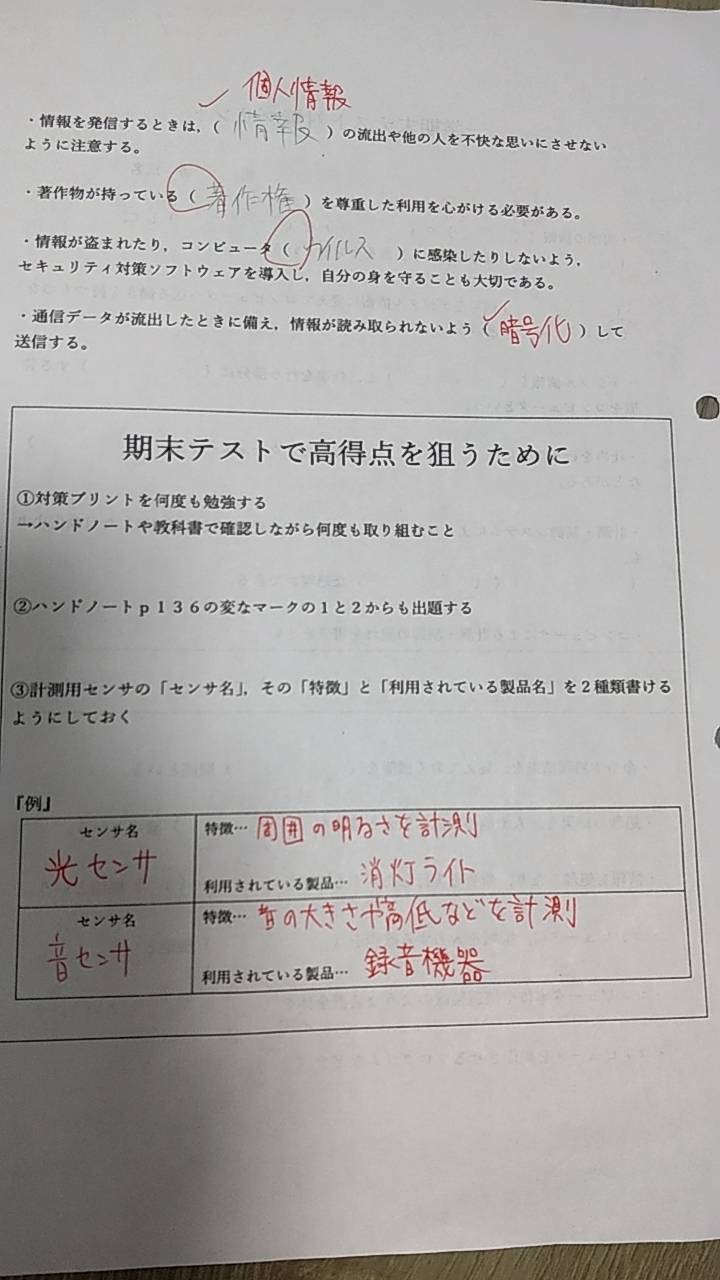 個人情報
・情報を発信するときは，（ 情報 ）の流出や他の人を不快な思いにさせない
ように注意する。
・著作物が持っている（ 著作権 ）を尊重した利用を心がける必要がある。
・情報が盗まれたり，コンピュータ（ ウイルス ）に感染したりしないよう，
セキュリティ対策ソフトウェアを導入し，自分の身を守ることも大切である。
・通信データが流出したときに備え，情報が読み取られないよう（ 暗号化 ）して
送信する。
期末テストで高得点を狙うために
①対策プリントを何度も勉強する
→ハンドノートや教科書で確認しながら何度も取り組むこと
②ハンドノートｐ１３６の変なマークの１と２からも出題する
③計測用センサの「センサ名」，その「特徴」と「利用されている製品名」を２種類書ける
ようにしておく
『例』
センサ名
光センサ
特徴… 周囲の明るさを計測
利用されている製品… 消灯ライト
センサ名
音センサ
特徴… 音の大きさや高低などを計測
利用されている製品… 録音機器